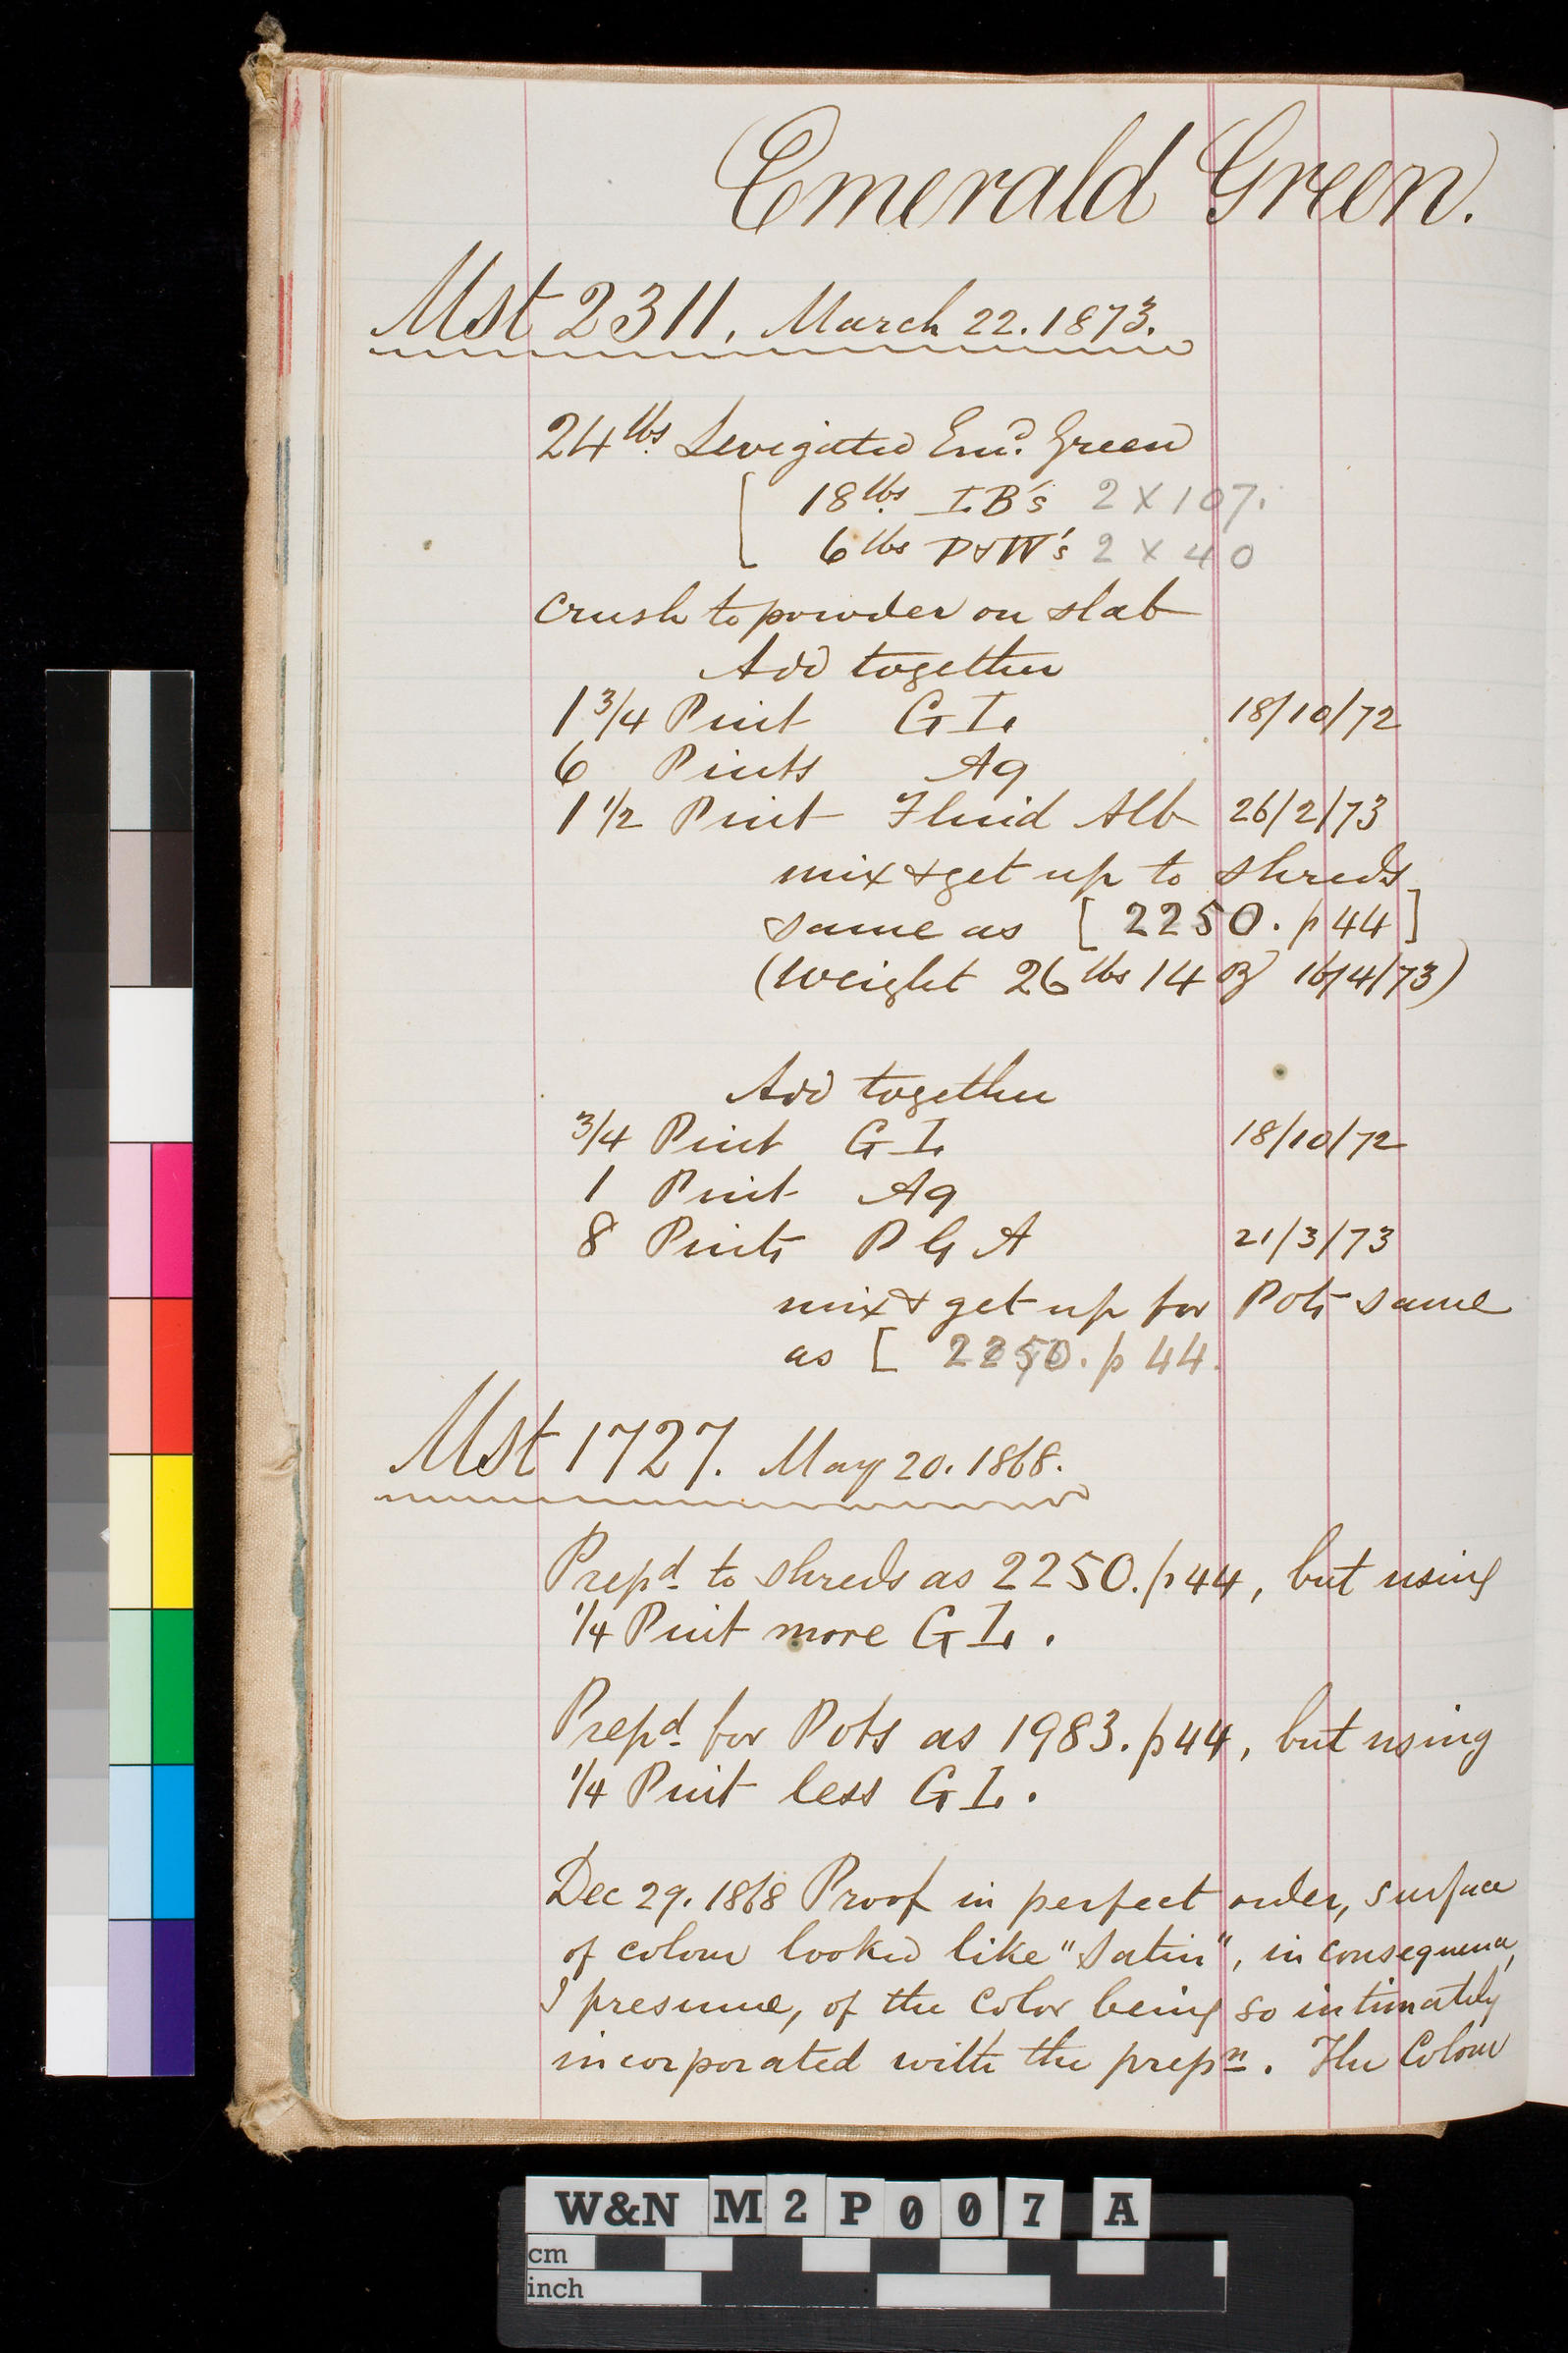 Emerald Green.
Mst 2311. March 22. 1873.
24 lbs Levigated Emd. Green
[ 18 lbs I.B's 2 X 107.
6 lbs P&W's 2 X 40
crush to powder on slab
Add together
1 3/4 Pint G I. 18/10/72
6 Pints Aq
1 1/2 Pint Fluid Alb 26/2/73
mix & get up to shreds
same as [ 2250. p 44 ]
(Weight 26 lbs 14 oz 16/4/73)
Add together
3/4 Pint G I. 18/10/72
1 Pint Aq
8 Pints P G A 21/3/73
mix & get up for Pots same
as [ 2250. p 44.
Mst 1727. May 20. 1868.
Prepd to shreds as 2250. p 44, but using
1/4 Pint more G I.
Prepd for Pots as 1983. p 44, but using
1/4 Pint less G I.
Dec 29. 1868 Proof in perfect order, surface
of colour looked like "Satin", in consequence,
I presume, of the color being so intimately
incorporated with the prepn. The Colour
W&N M2P007 A
cm
inch